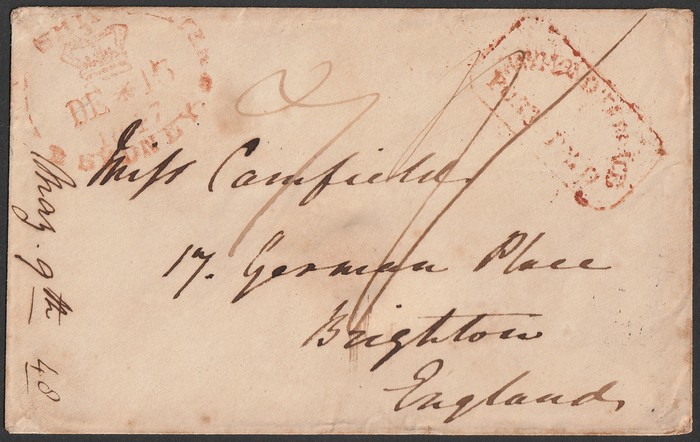 SHIP LETTER
DE * 15
1847
SYDNEY
Miss Camfield
17. German Place
Brighton
England
May. 9th 48